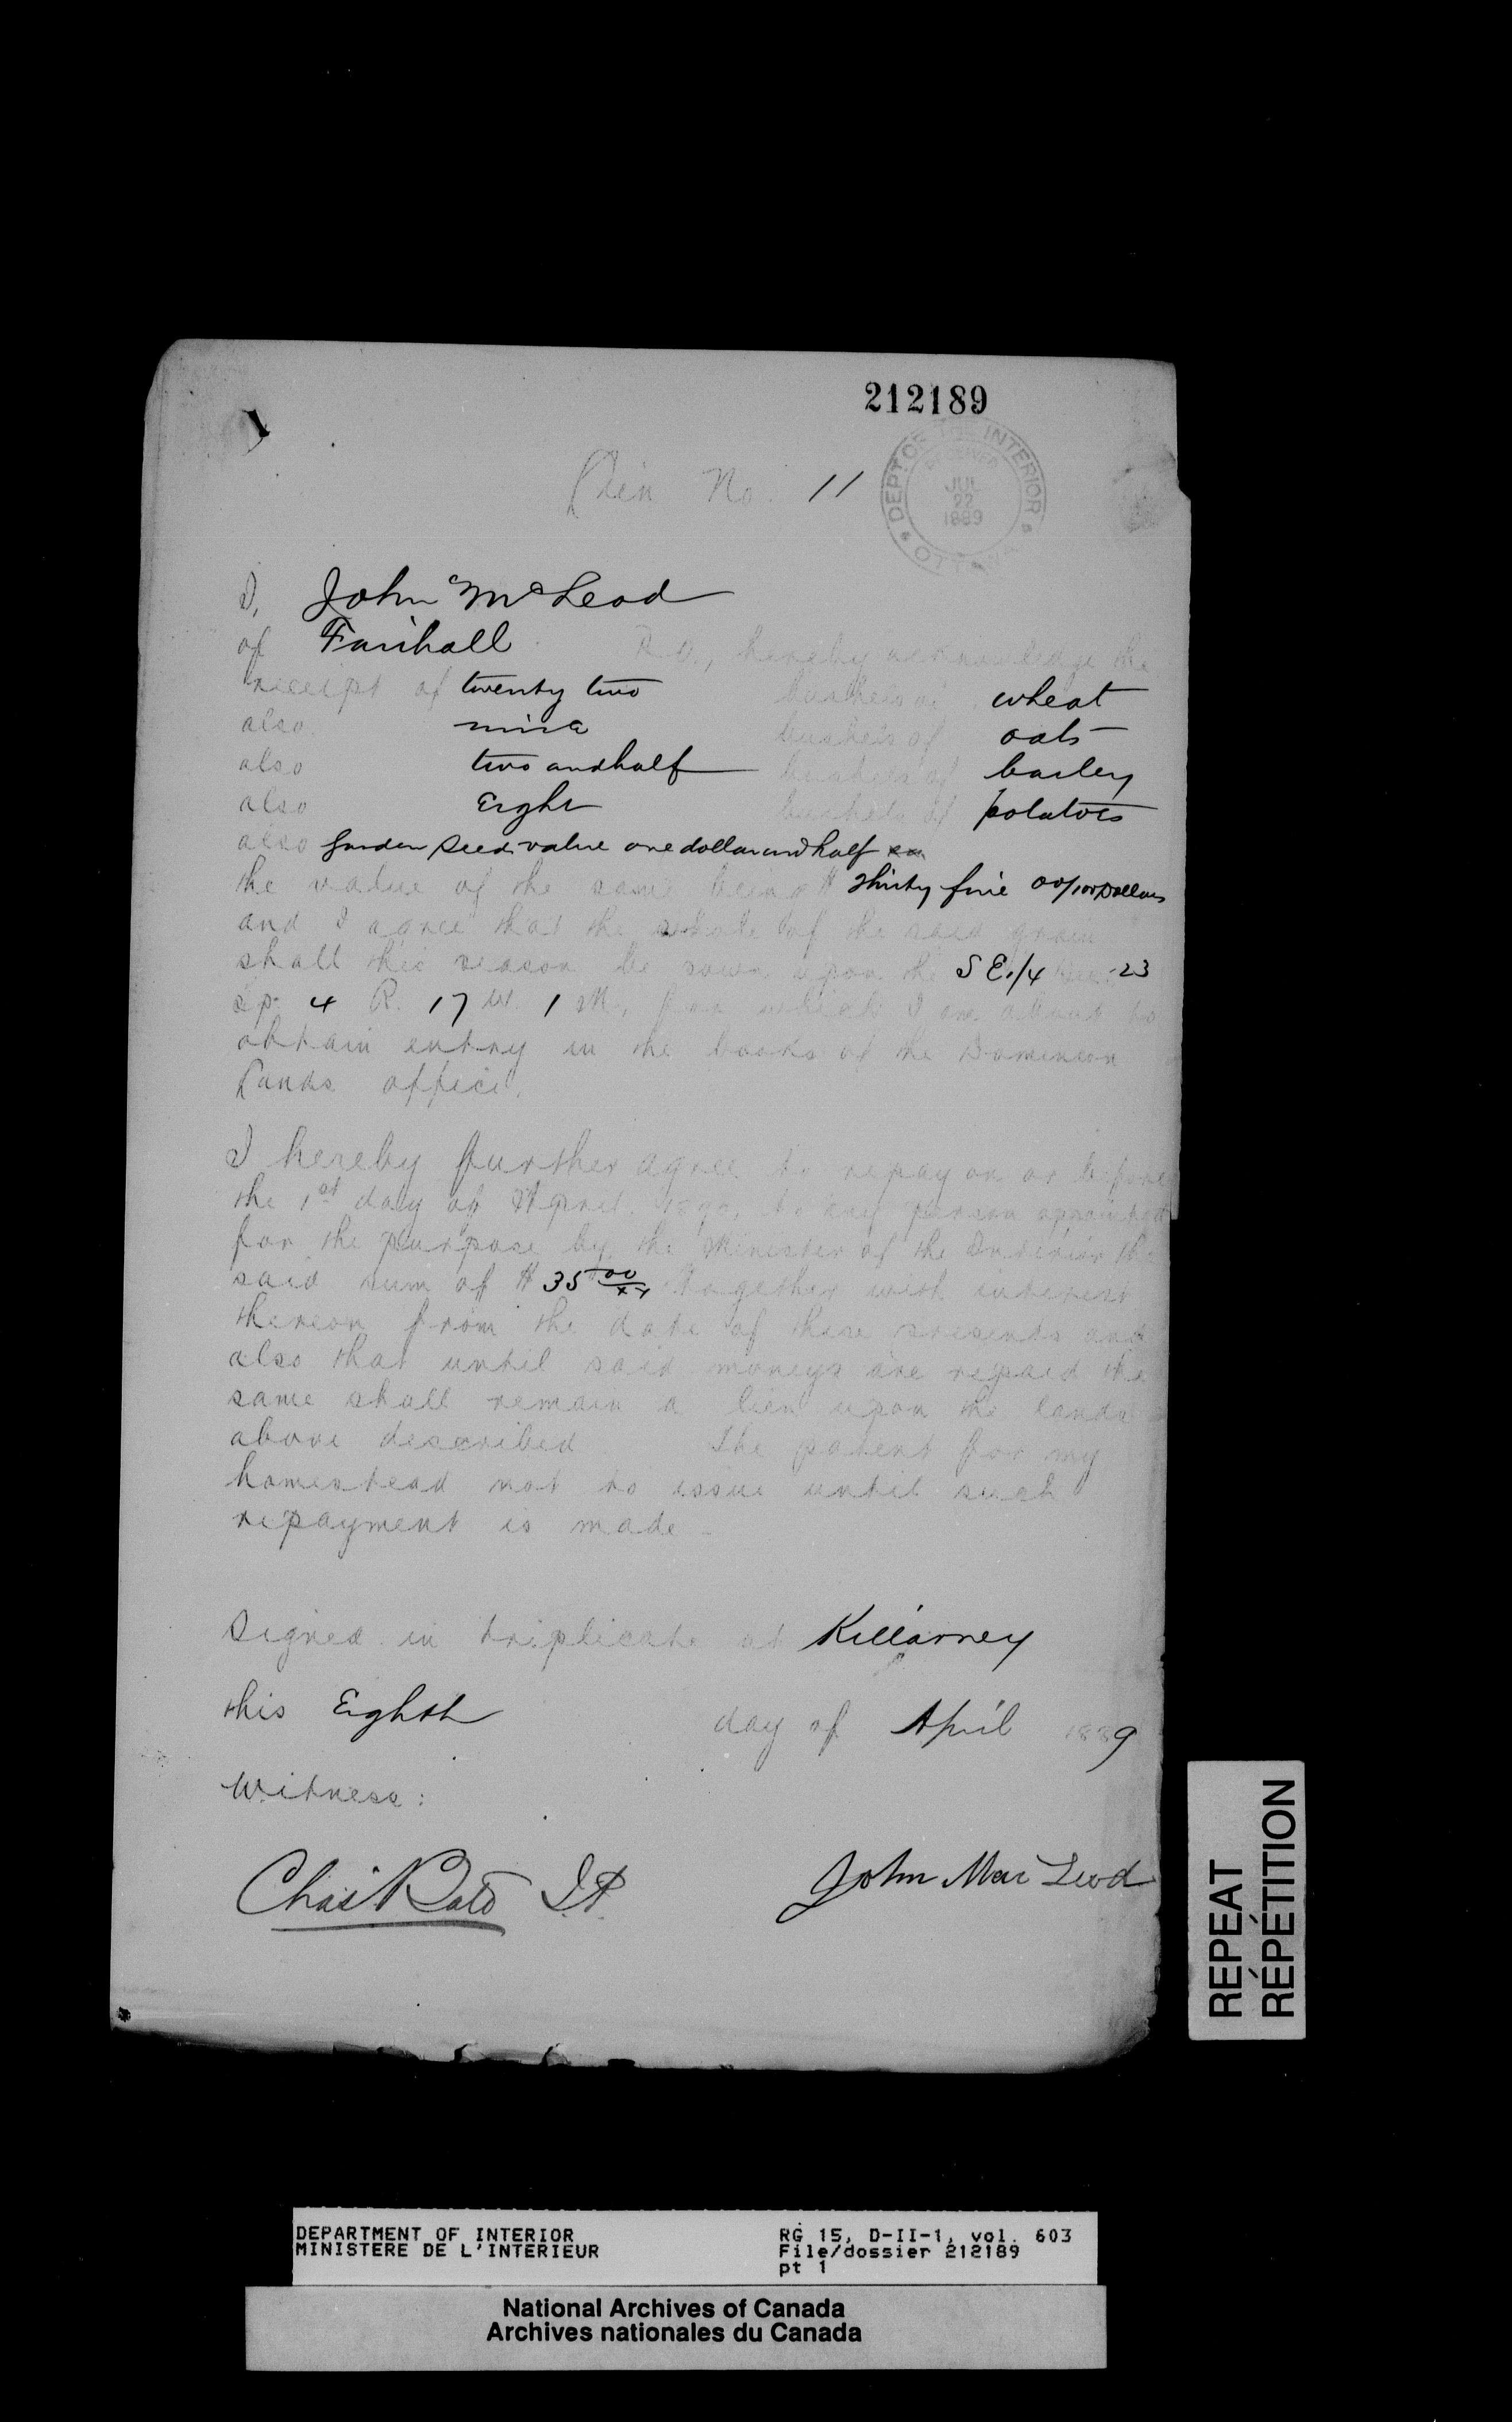 212189
Lien No. 11
DEPT. OF THE INTERIOR
RECEIVED
JUL
22
1889
OTTAWA
I, John McLeod
of Fairhall P.O., hereby acknowledge the
receipt of twenty two bushels of wheat
also nine bushels of oats
also two and half bushels of barley
also Eight bushels of potatoes
also garden seed value one dollar and half
the value of the same being $ Thirty five 00/100 Dollars
and I agree that the whole of the said grain
shall this season be sown upon the S E 1/4 Sec. 23
Tp. 4 R. 17 W. 1 M., for which I am about to
obtain entry in the books of the Dominion
Lands office.
I hereby further agree to repay on or before
the 1st day of April 1890, to any person appointed
for the purpose by the Minister of the Interior the
said sum of $ 35 00/xx together with interest
thereon from the date of these presents and
also that until said moneys are repaid the
same shall remain a lien upon the lands
above described. The patent for my
homestead not to issue until such
repayment is made -
Signed in triplicate at Killarney
this Eighth day of April 1889
Witness:
Chas Bate J.P. John MacLeod
REPEAT
RÉPÉTITION
DEPARTMENT OF INTERIOR RG 15, D-II-1, vol. 603
MINISTERE DE L'INTERIEUR File/dossier 212189
pt 1
National Archives of Canada
Archives nationales du Canada